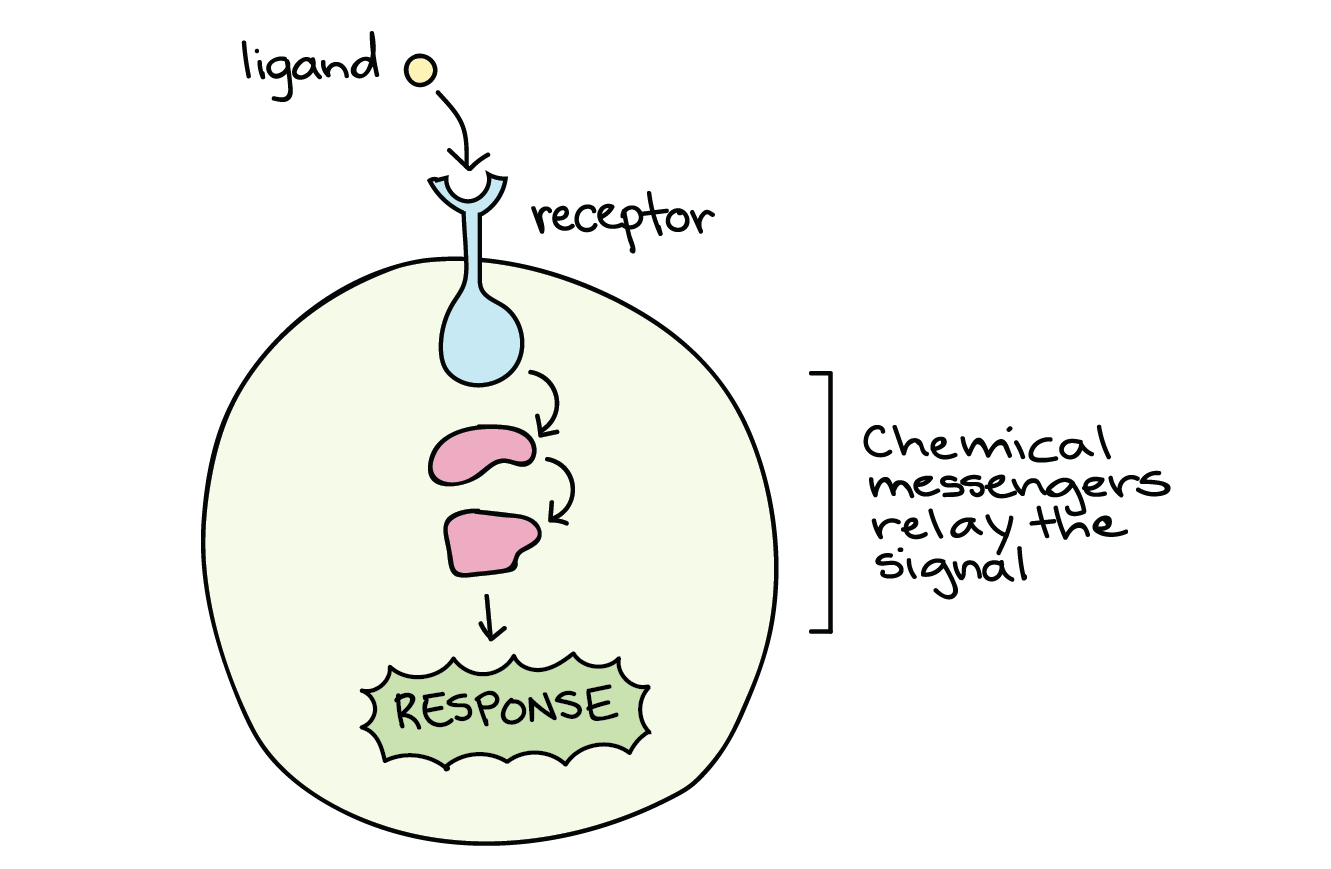 ligand
receptor
Chemical
messengers
relay the
signal
RESPONSE